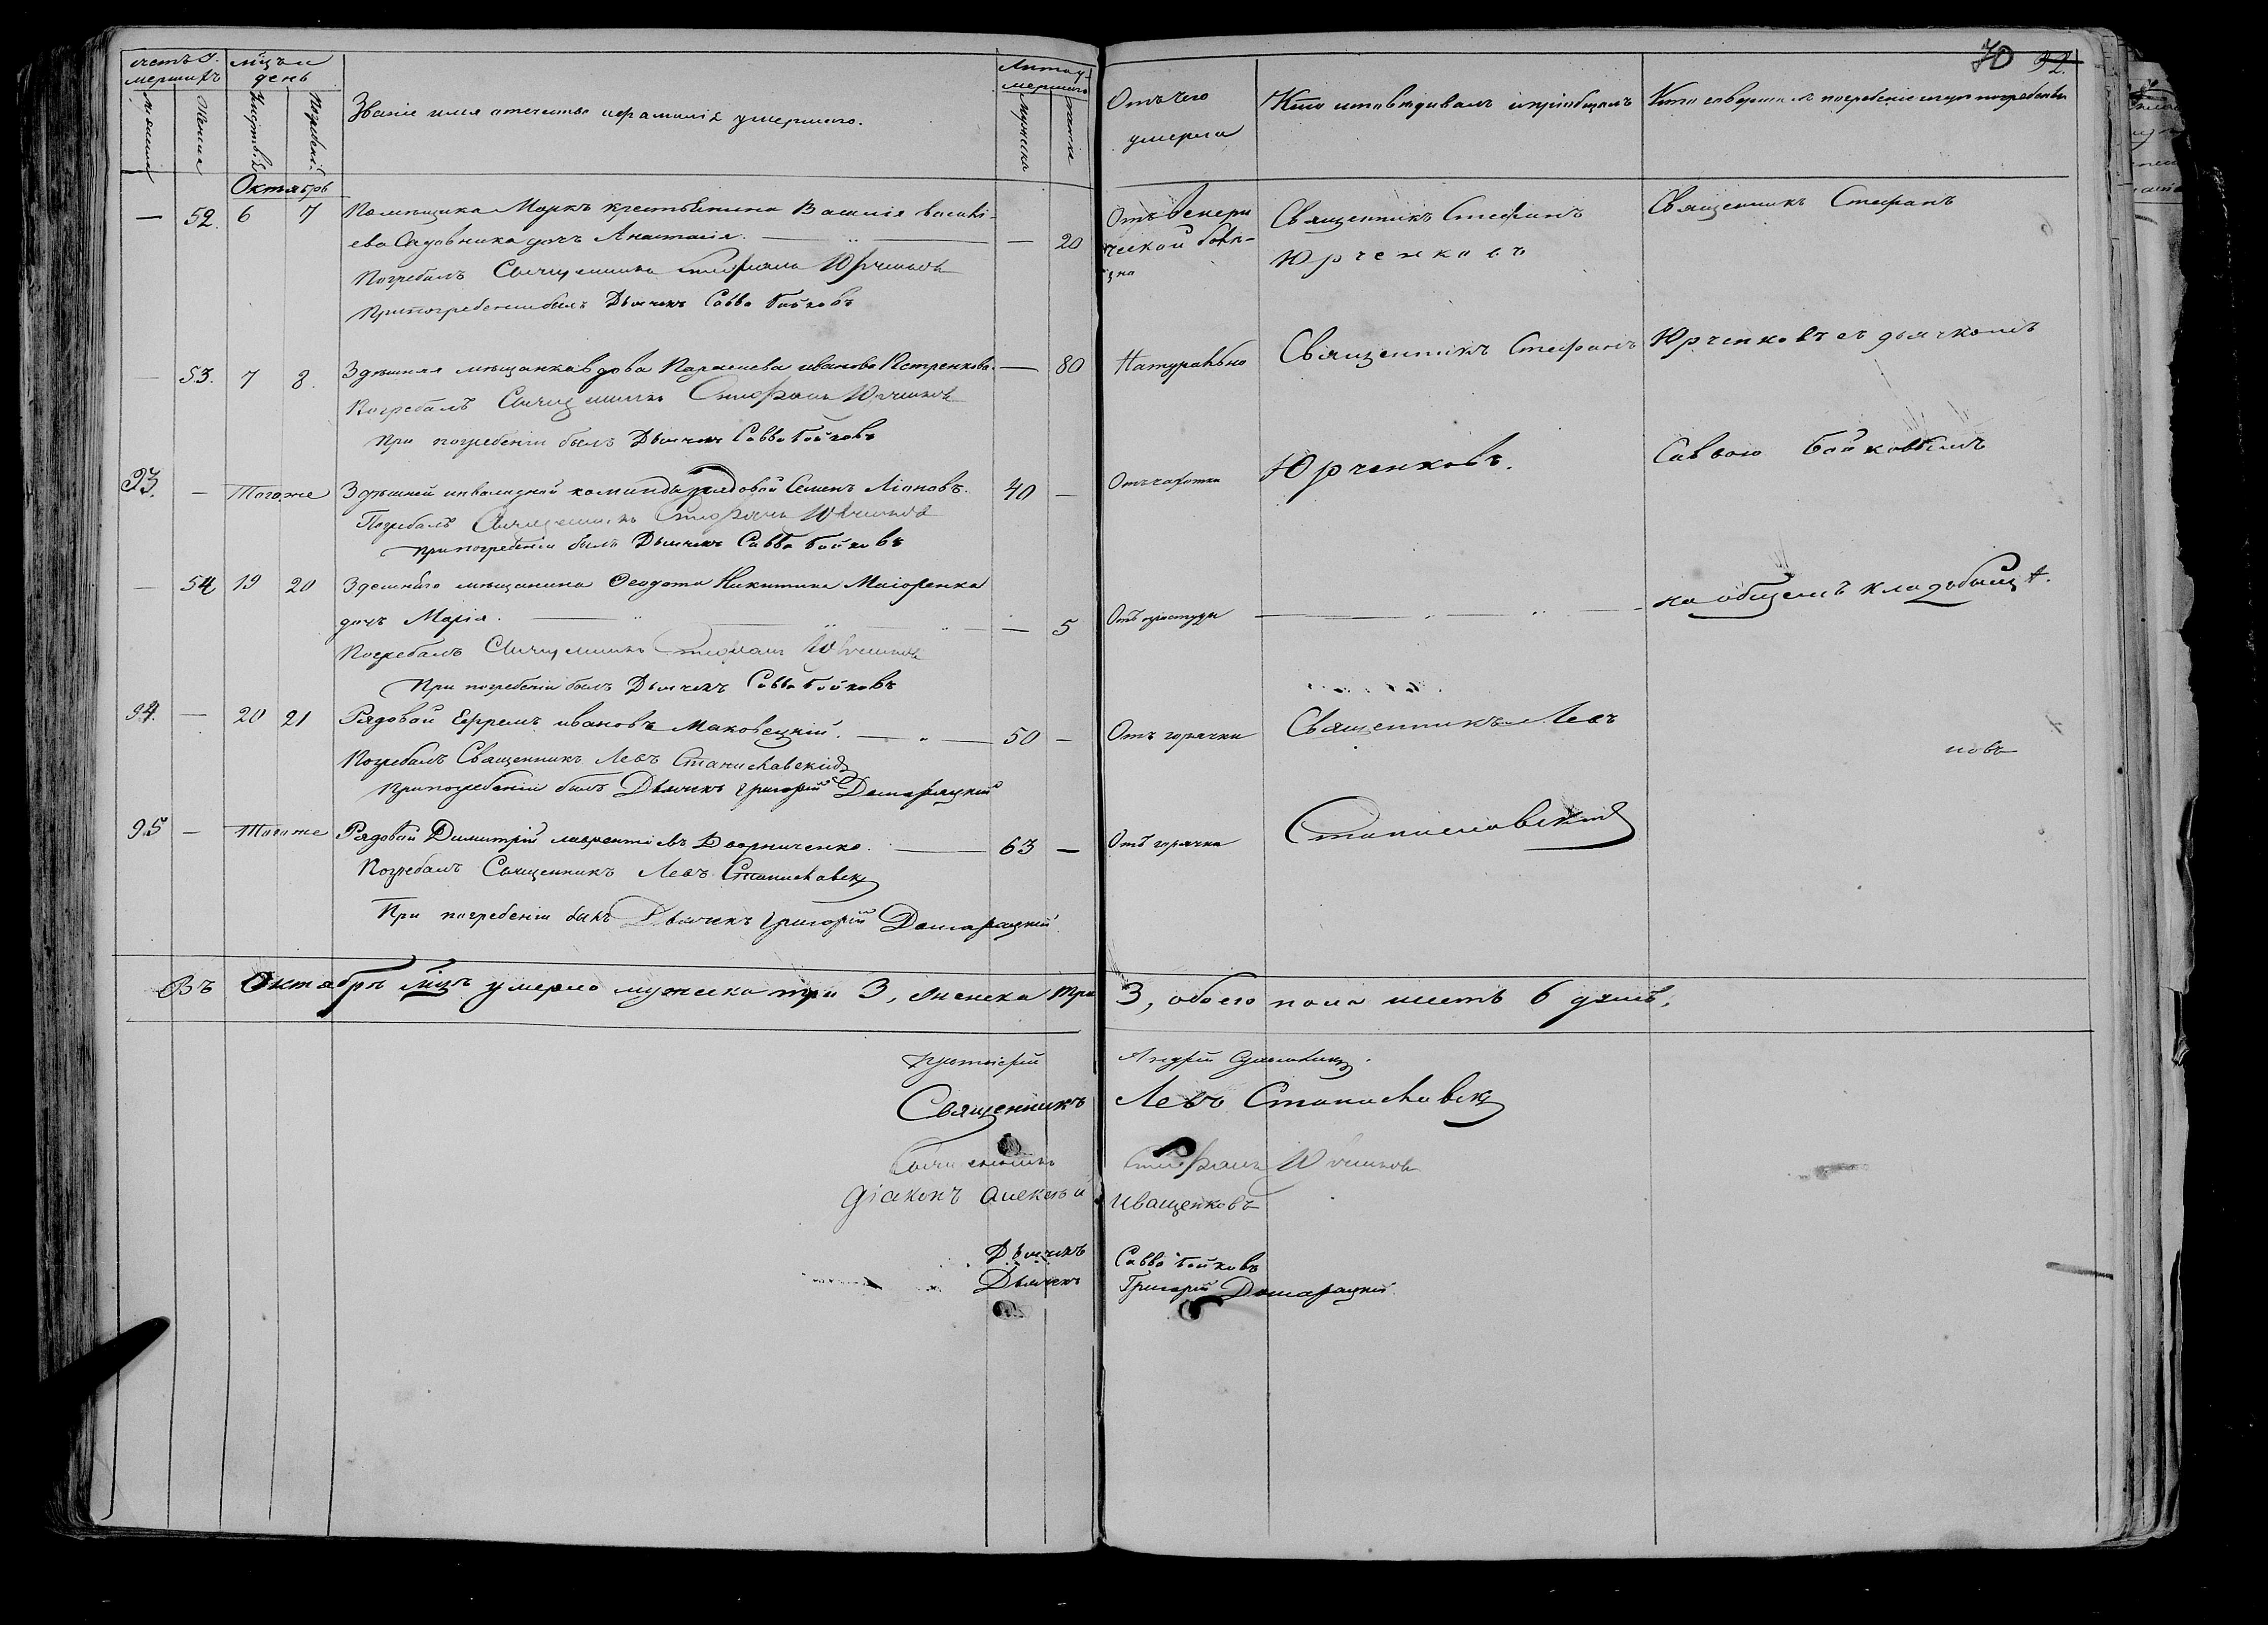 70 92.
счетъ у- мѣсцъ и Лита у-
мершихъ день мершаго
Мужеска Женска Смерть Погребенія Званіе имя отечество и фамилія умершаго. Мужеска женска Отъ чего умерла Кто исповѣдывалъ и пріобщалъ Кто совершалъ погребеніе и гдѣ погребены
Октябрь
— 52. 6 7 Помѣщика Маркъ крестьянина Василія Василі- Отъ Венери Священникъ Стефанъ Священникъ Стефанъ
ева Садовника дочь Анастасія. — 20 ческой болѣ- Юрченковъ
зни
Погребалъ Священникъ Стефанъ Юрченковъ
При погребеніи былъ Дьячекъ Савва Бойковъ
— 53. 7 8. Здѣшняя мѣщанка вдова Параскева иванова Петренкова. — 80 Натурально Священникъ Стефанъ Юрченковъ съ дьячкомъ
Погребалъ Священникъ Стефанъ Юрченковъ
При погребеніи былъ Дьячекъ Савва Бойковъ
93. — Того же Здѣшней инвалидной команды рядовой Семенъ Ліоновъ. 40 — Отъ чахотки Юрченковъ. Саввою Бойковымъ
Погребалъ Священникъ Стефанъ Юрченковъ
При погребеніи былъ Дьячекъ Савва Бойковъ
— 54 19 20 Здешняго мѣщанина Ѳеодота Никитина Маіоренка на общемъ кладбищѣ.
дочь Марія. — 5 Отъ простуды
Погребалъ Священникъ Стефанъ Юрченковъ
При погребеніи былъ Дьячекъ Савва Бойковъ
94. — 20 21 Рядовой Ефремъ ивановъ Маковецкій. 50 — Отъ горячки Священникъ Левъ
новъ
Погребалъ Священникъ Левъ Станиславскій
При погребеніи былъ Дьячекъ Григорій Домарацкій
95 — Того же Рядовой Димитрій лаврентіевъ Дворниченко. 63 — Отъ горячки Станиславскій
Погребалъ Священникъ Левъ Станиславскій
При погребеніи былъ Дьячекъ Григорій Домарацкій
Въ Октябрѣ мцѣ умерло мужеска три 3, женска три 3, обоего пола шесть 6 душъ.
Протоіерей Андрей
Священникъ Левъ Станиславскій
Священникъ Стефанъ Юрченковъ
Діаконъ Алексѣй Иващенковъ
Дьячекъ Савва Бойковъ
Дьячекъ Григорій Домарацкій.